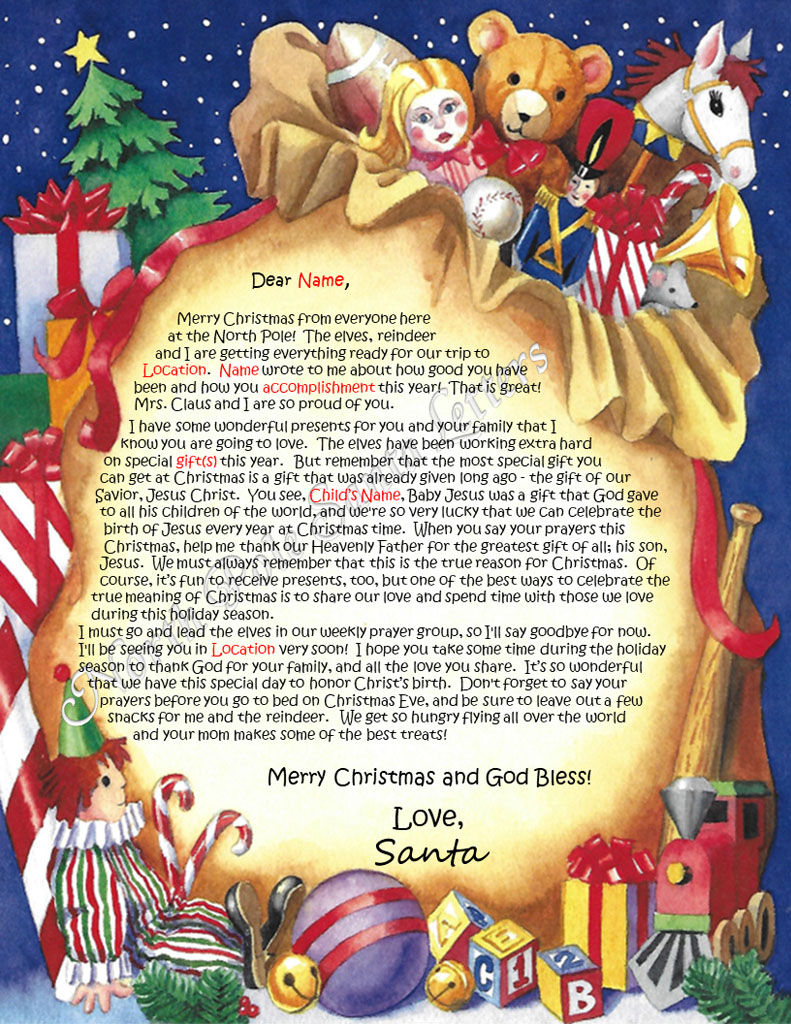 Dear Name,
Merry Christmas from everyone here
at the North Pole! The elves, reindeer
and I are getting everything ready for our trip to
Location. Name wrote to me about how good you have
been and how you accomplishment this year! That is great!
Mrs. Claus and I are so proud of you.
I have some wonderful presents for you and your family that I
know you are going to love. The elves have been working extra hard
on special gift(s) this year. But remember that the most special gift you
can get at Christmas is a gift that was already given long ago - the gift of our
Savior, Jesus Christ. You see, Child's Name, Baby Jesus was a gift that God gave
to all his children of the world, and we're so very lucky that we can celebrate the
birth of Jesus every year at Christmas time. When you say your prayers this
Christmas, help me thank our Heavenly Father for the greatest gift of all; his son,
Jesus. We must always remember that this is the true reason for Christmas. Of
course, it's fun to receive presents, too, but one of the best ways to celebrate the
true meaning of Christmas is to share our love and spend time with those we love
during this holiday season.
I must go and lead the elves in our weekly prayer group, so I'll say goodbye for now.
I'll be seeing you in Location very soon! I hope you take some time during the holiday
season to thank God for your family, and all the love you share. It's so wonderful
that we have this special day to honor Christ's birth. Don't forget to say your
prayers before you go to bed on Christmas Eve, and be sure to leave out a few
snacks for me and the reindeer. We get so hungry flying all over the world
and your mom makes some of the best treats!
Merry Christmas and God Bless!
Love,
Santa
North Pole Santa Letters
A C E
C 1 2 B